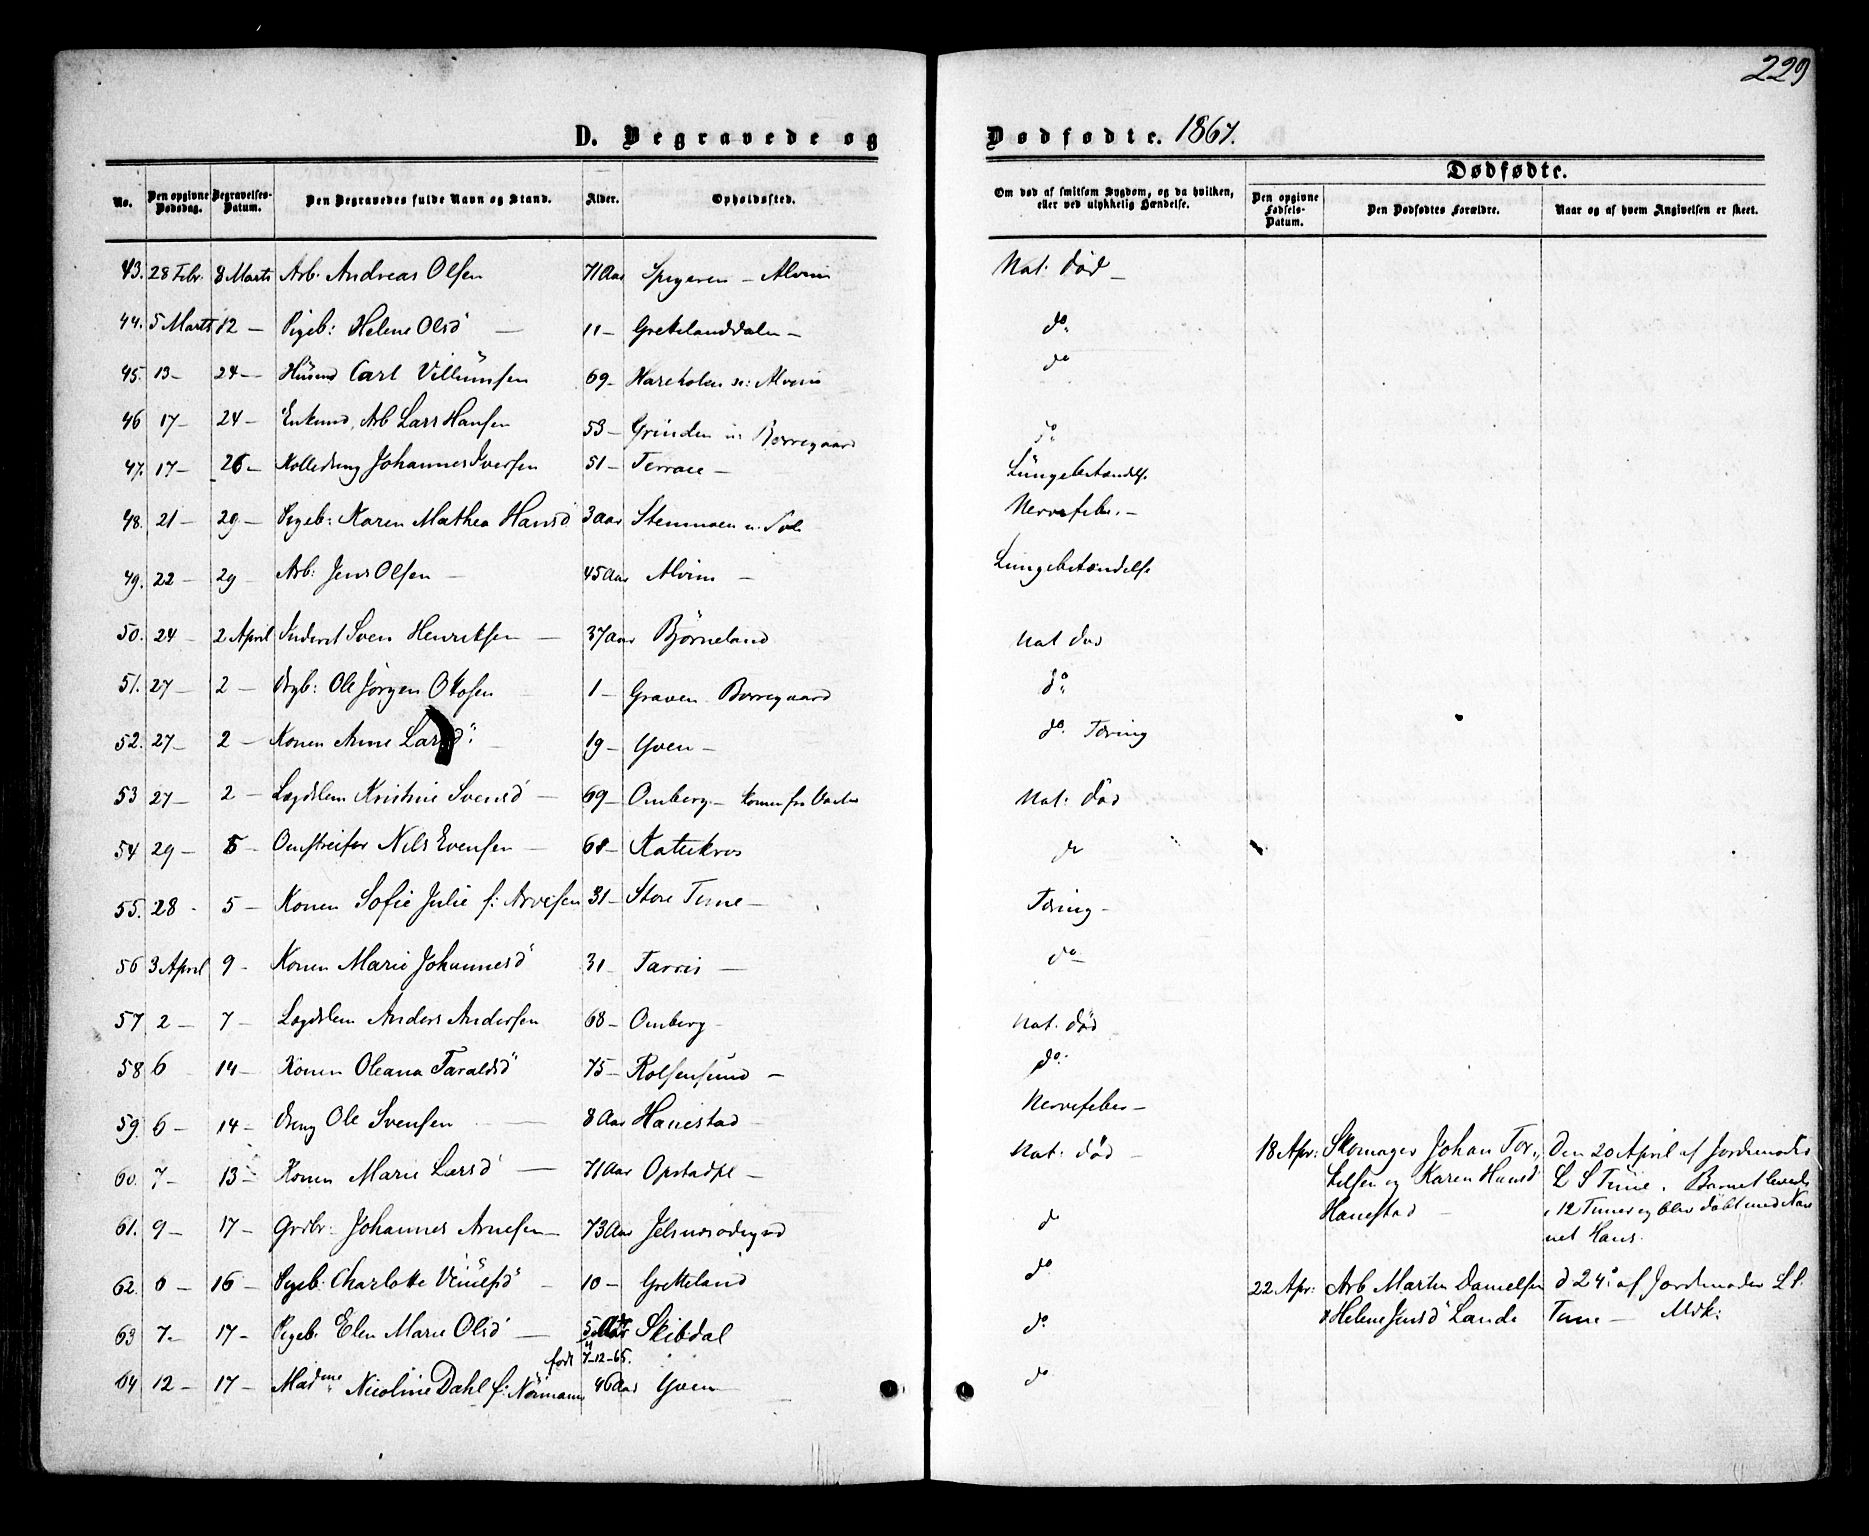 229
D. Begravede og Dødfødte. 1867.
Dødfødte.
No. Den opgivne Dødsdag. Begravelses-Datum. Den Begravedes fulde Navn og Stand. Alder. Opholdssted. Om død af smitsom Sygdom, og da hvilken, eller ved ulykkelig Hændelse. Den opgivne Fødsels-Datum. Den Dødfødtes Forældre. Naar og af hvem Angivelsen er skeet.
43. 28 Febr. 8 Marts Arb. Andreas Olsen 71 Aar Spigeren – Alvim Nat: død –
44. 5 Marts 12 – Pigeb: Helene Olsd – 11 – Gretelanddalen – do
45. 13 – 24 – Husmd Carl Villumsen 69 – Hareholen n: Alvim do
46 17 – 24 – Enkmd, Arb Lars Hansen 53 – Grinden n: Borregaard do
47. 17 – 26 – Johannes Iversen 51 – Terrace – Lungebetændels.
48. 21 – 29 – Pigeb: Karen Mathea Hansd 3 Aar Stenmoen n. Nervefeber. –
49. 22 – 29 – Arb: Jens Olsen – 45 Aar Alvim – Lungebetændelse
50. 24 – 2 April Inderst Sven Henriksen – 37 Aar Bjørneland Nat død
51. 27 – 2 – Drgb: Ole Jørgen Olosen 1 – Graven Borregaard do
52. 27 – 2 – Konen Anne Larsd: – 19 – Yven – do. Tæring
53 27 – 2 – Lægdslem Kristine Svensd – 69 – Omberg – Nat: død
54 29 – 5 – Omstreifer Nils Evensen – 68 – Katrikros do
55. 28 – 5 – Konen Sofie Julie f: Arvesen 31 – Store Tune – Tæring –
56 3 April 9 – Konen Marie Johannesd 31 – Tarris – do –
57 2 – 7 – Lægdslem Anders Andersen 68 – Omberg – Nat: død
58 6 14 – Konen Oleana Taraldsd 75 – Rolfsensund – do:
59. 6 – 14 – Dreng Ole Svensen – 8 Aar Hanestad – Nervefeber –
60. 7 – 13 – Konen Marie Larsd – 71 Aar Opstadpl – Nat: død –
61. 9 – 17 – Grdbr: Johannes Arnesen – 73 Aar do
62. 6 – 16 – Pigeb. Charlotte – 10 – Gretteland do
63 7 – 17 – Pigeb: Elen Marie Olsd – Skibdal do
født 7–12–65.
64 12 – 17 – Madme Nicoline Dahl f: Normann 46 Aar Yven – do
18 Apr: Skomager Johan Tor-
kelsen og Karen Hansd
Hanestad –
Den 20 April af Jordemoder
L S Tune. Barnet levede
i 12 Timer og blev døbt med Nav
net Hans.
22 Apr: Arb Martin Danielsen
& Helene Jensd Lande
d 24: af Jordemoder L S.
Tune –